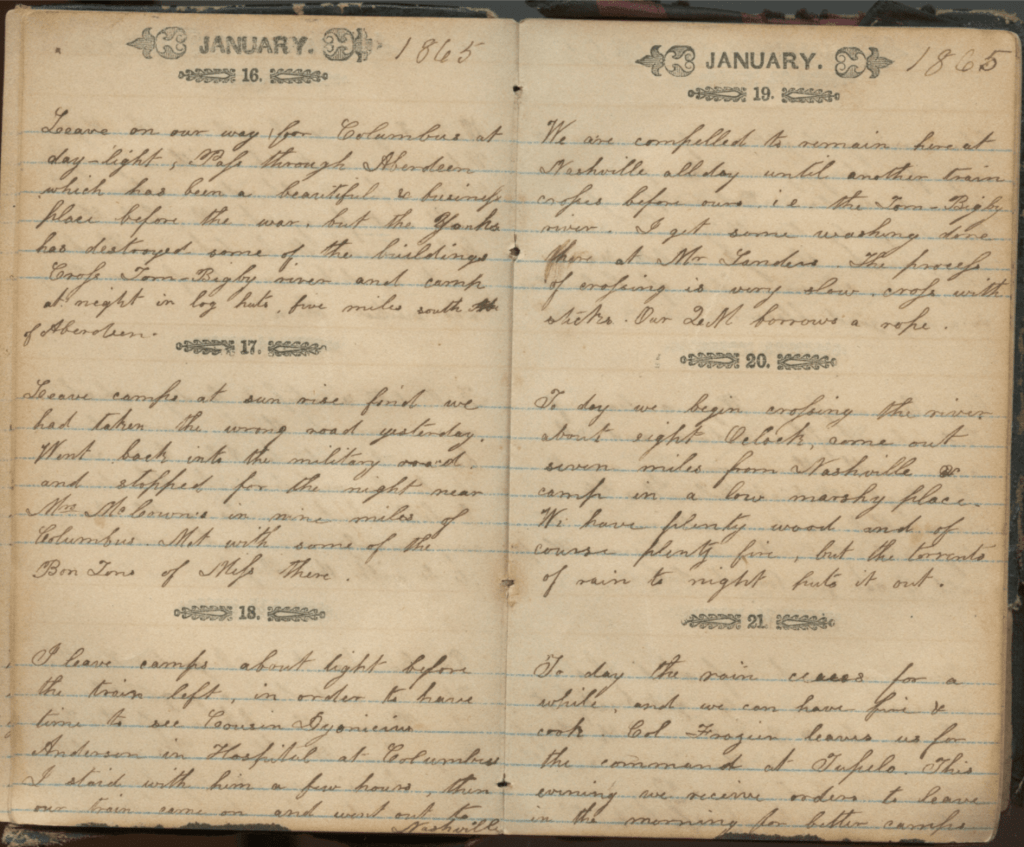 JANUARY. 1865
16.
Leave on our way for Columbus at
day-light, Pass through Aberdeen
which has been a beautiful & business
place before the war. but the Yanks
has destroyed some of the buildings
Cross Tom-Bigby river and camp
at night in log huts, five miles south
of Aberdeen.
17.
Leave camps at sun rise find we
had taken the wrong road yesterday.
Went back into the military road.
and stopped for the night near
Mrs McCowns in nine miles of
Columbus. Met with some of the
Bon Tons of Miss there.
18.
I leave camps about light before
the train left, in order to have
time to see Cousin Dyonicius
Anderson in Hospital at Columbus
I staid with him a few hours, then
our train came on and went out to
Nashville
JANUARY. 1865
19.
We are compelled to remain here at
Nashville all day until another train
crosses before ours. i.e. the Tom-Bigby
river. I get some washing done
here at Mr Landers The process
of crossing is very slow. cross with
sticks. Our QM borrows a rope.
20.
To day we begin crossing the river
about eight Oclock, come out
seven miles from Nashville &
camp in a low marshy place.
We have plenty wood and of
course plenty fire, but the torrents
of rain to night puts it out.
21.
To day the rain ceases for a
while, and we can have fire &
cook. Col Frazier leaves us for
the command at Tupelo. This
evening we receive orders to leave
in the morning for better camps